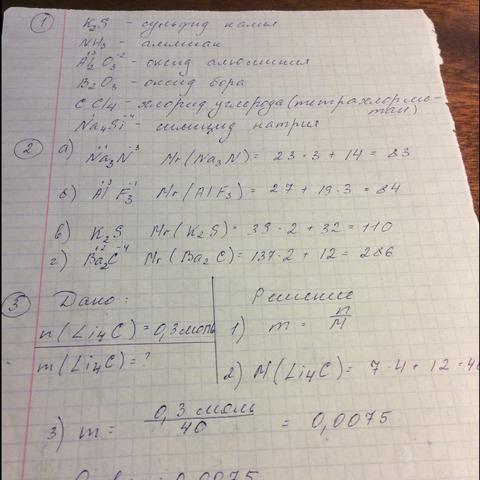 ① K₂S - сульфид калия
NH₃ - аммиак
Al₂⁺³O₃⁻² - оксид алюминия
B₂O₃ - оксид бора
CCl₄ - хлорид углерода (тетрахлорме-
тан)
Na₄⁺¹Si⁻⁴ - силицид натрия
② а) Na₃⁺¹N⁻³ Mr(Na₃N) = 23·3 + 14 = 83
б) Al⁺³F₃⁻¹ Mr(AlF₃) = 27 + 19·3 = 84
в) K₂S Mr(K₂S) = 39·2 + 32 = 110
г) Ba₂⁺²C⁻⁴ Mr(Ba₂C) = 137·2 + 12 = 286
③ Дано:
n(Li₄C) = 0,3 моль
m(Li₄C) = ?
Решение
1) m = n/M
2) M(Li₄C) = 7·4 + 12 = 40
3) m = 0,3 моль/40 = 0,0075
0,0075